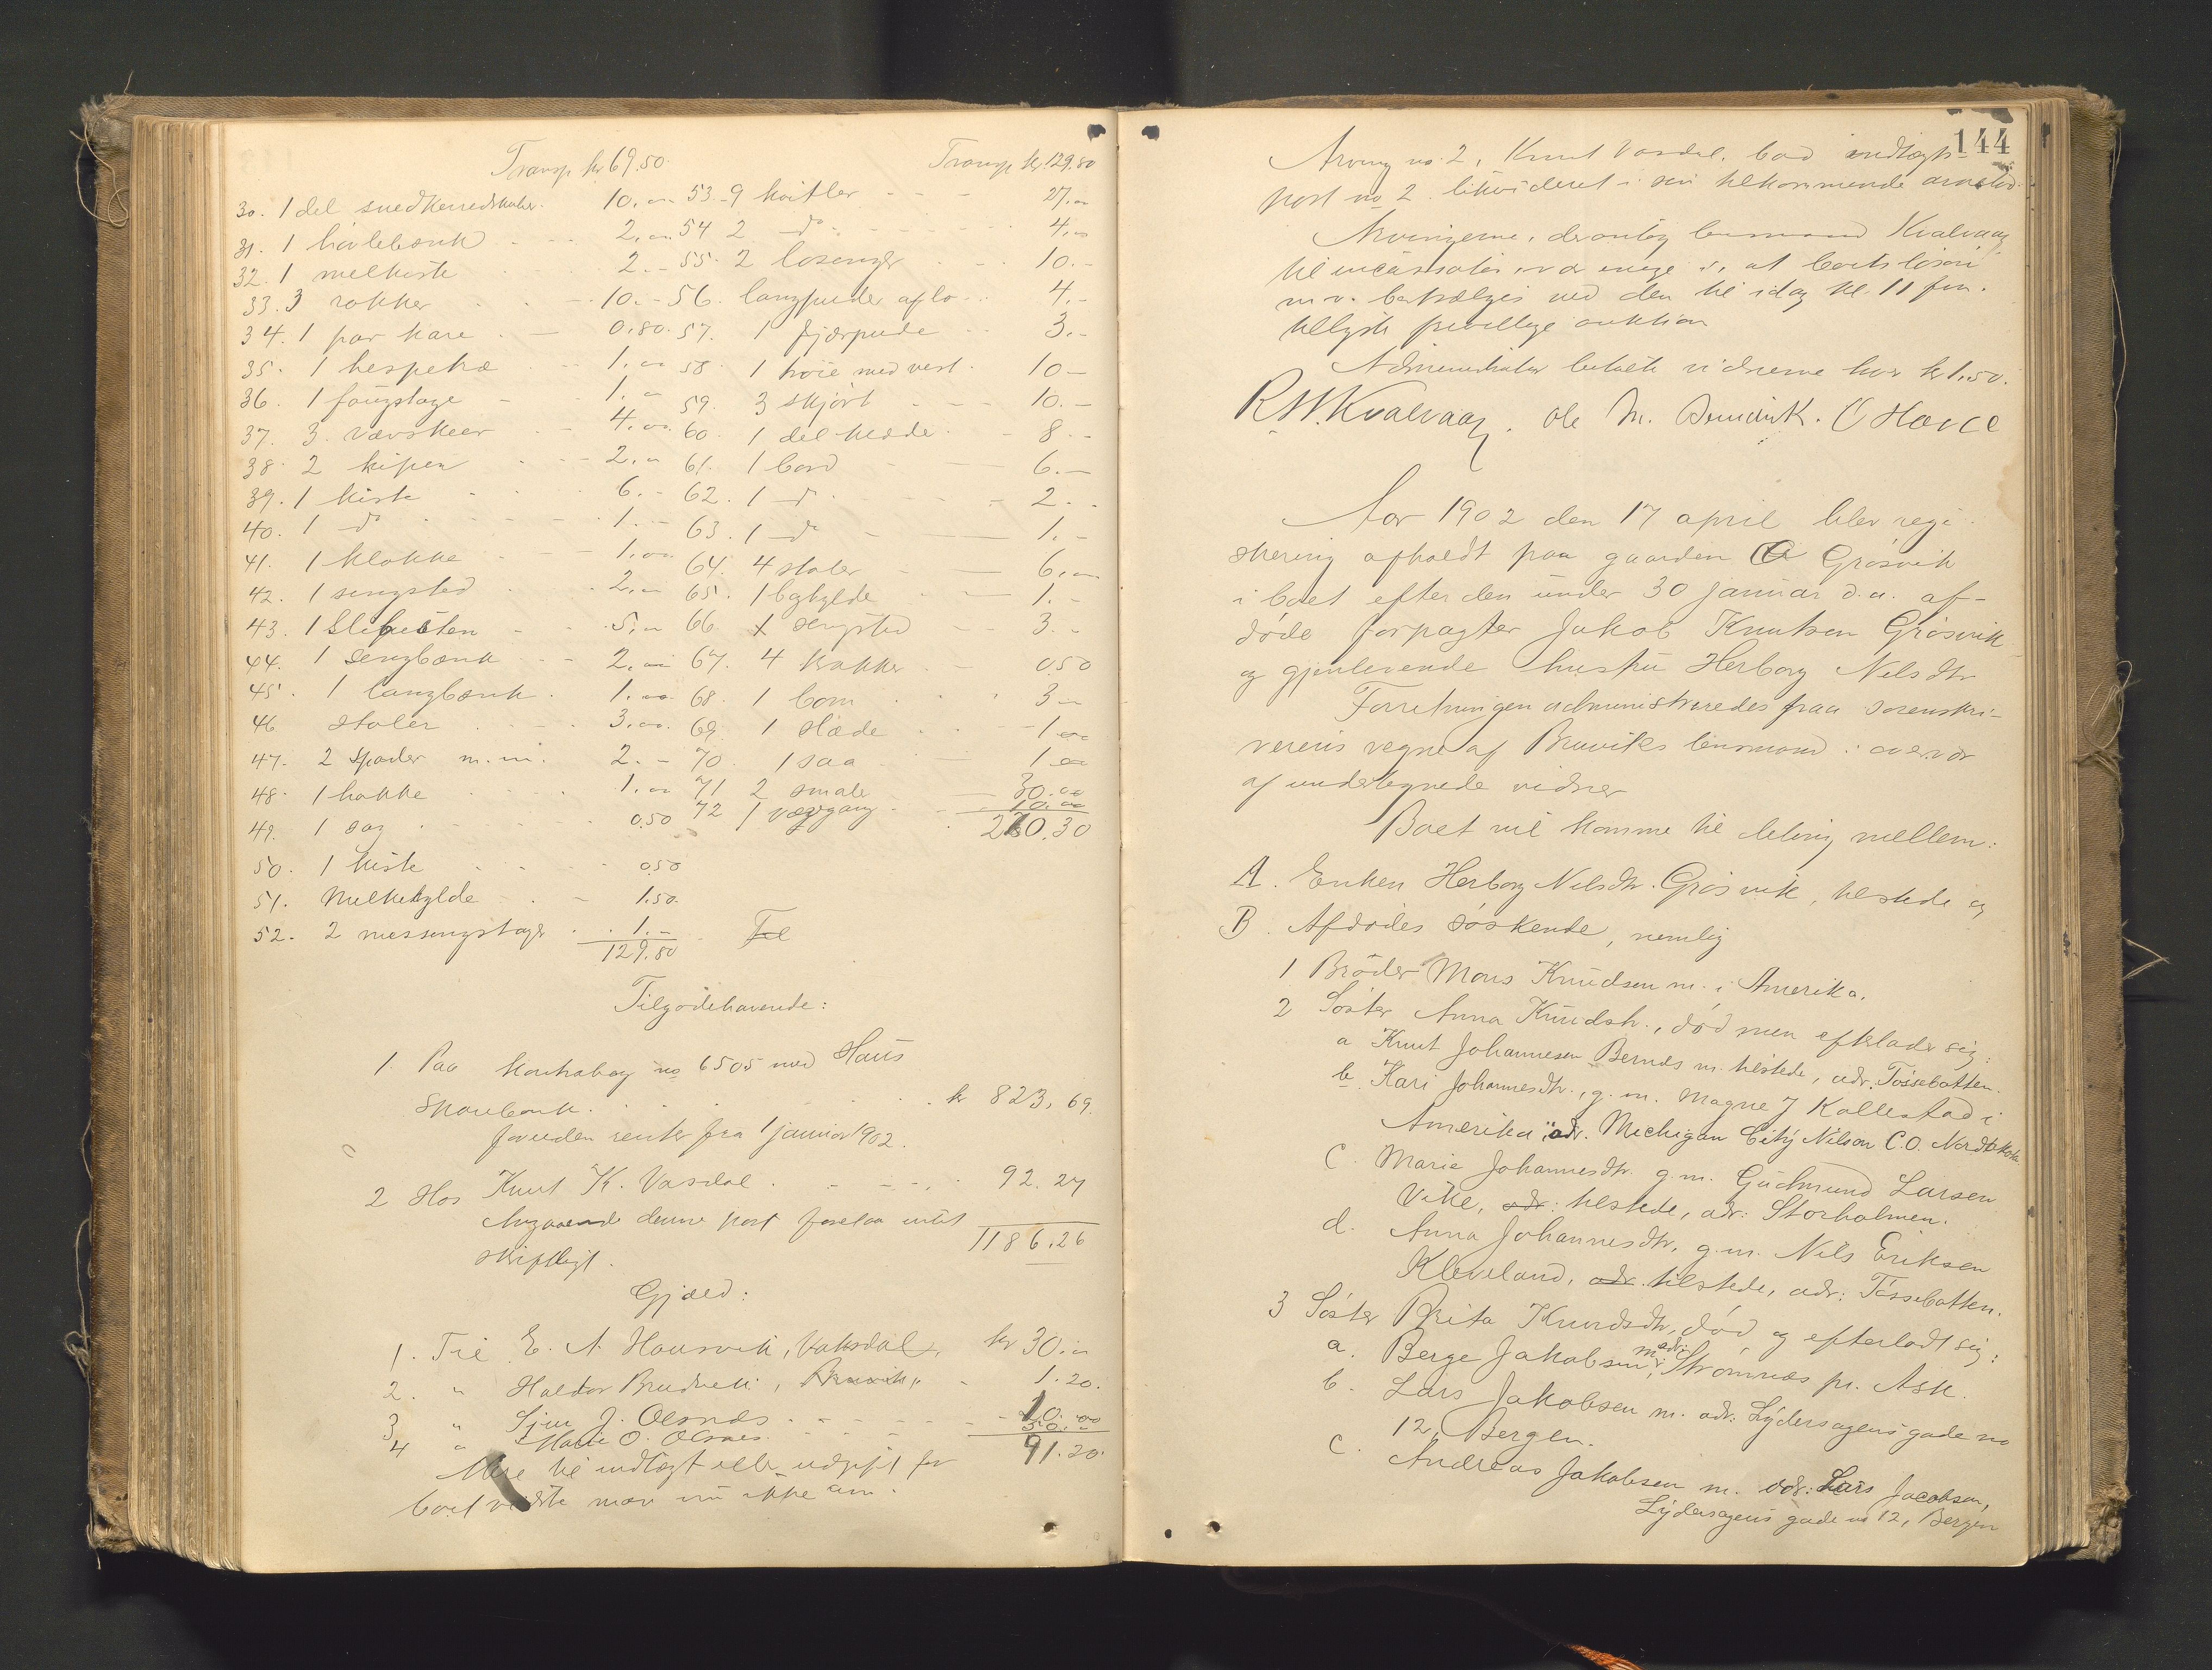 Transp kr 69.50.
30. 1 del snedkerredskaber. 10.00
31. 1 høvlebænk 2.00
32. 1 melkiste 2.-
33. 3 rokker 10.-
34. 1 par kare 0.80.
35. 1 hespetræ 1.00
36. 1 1.-
37. 3 vævskeer 4.00.
38. 2 kiper 2.-
39. 1 kiste 6.-
40. 1 do 1.-
41. 1 klokke 1.00.
42. 1 sengsted 2.-
43. 1 Slibesten 5.-
44. 1 sengbænk 2.00
45. 1 langbænk 1.00
46 stoler 3.00.
47. 2 spader m.m. 2.-
48. 1 hakke 1.00
49. 1 sag 0.50
50. 1 kiste 0.50
51. Melkehylde 1.50.
52. 2 messingstager 1.-
129.80
Transp kr. 129.80
53. 9 koitler 27.00
54 2 do 4.00
55. 2 10.-
56. langpuder 4.-
57. 1 fjærpude 3.-
58. 1 trøie med vest. 10-
59. 3 skjört 10.-
60. 1 del klæde 8.-
61. 1 bord 6.-
62. 1 do 2.-
63. 1 do 1.-
64. 4 stoler 6.00
65. 1 hylde 1.-
66 1 sengsted 3.-
67. 4 krakker 0.50
68. 1 3-
69. 1 slæde 1.00
70. 1 saa 1.00
71 2 smale 30.00
72 1 10.00
270.30
Til
Tilgodehavende:
1. Paa kontrabog no 6505 med Haus
Sparebank. kr 823,69.
foruden renter fra 1 januar 1902.
2 Hos Knut K. Vasdal 92.27
Angaaende denne post forelaa intet
skriftligt. 1186.26
Gjæld:
1. Til E. A. Hausvik, Vaksdal, kr 30.00
2. " Haldor Brudvik, Bruvik, 1.20.
3 " J. Olsnes 10.00
4 " O. Olsnes 50.00
91.20.
Mere til indtægt eller udgift for
boet vidste man nu ikke om.
144
Arving no. 2, Knut Vasdal, bad indtægts-
post no 2 likvideret i sin tilkommende arvelod.
Arvingerne, derunder lensmand Kvalvaag
til incassator, var enige i, at boets løsøre
m.v. bortsælges ved den til idag kl. 11 fm.
tillyste frivillige auktion
Administrator betalte vidnerne hver kr 1.50.
R.N. Kvalvaag. Ole M. O Havre
Aar 1902 den 17 april blev regi-
strering afholdt paa gaarden Grösvik
i boet efter den under 30 januar d.a. af-
døde forpagter Jakob Knutsen Grösvik
og gjenlevende hustru Herborg Nelsdtr
Forretningen administreredes paa sorenskri-
verens vegne af Bruviks lensmand i overvær
af undertegnede vidner
Boet vil komme til deling mellem:
A. Enken Herborg Nelsdtr. Grösvik, tilstede og
B. Afdødes söskende, nemlig
1 Bröder Mons Knudsen m. i Amerika.
2 Söster Anna Knudsdtr., död men efterlader sig:
a Knut Johannesen Bernes m. tilstede, adr. Tössebotten.
b. Kari Johannesdtr., g. m. Magne J Kallestad i
Amerika, adr. Michigan City Nelson C.O. Nordd Dakota
c. Marie Johannesdtr. g.m. Gudmund Larsen
Vike, adr: tilstede, adr: Storholmen.
d. Anna Johannesdtr, g.m. Nils Eriksen
Kleveland, adr. tilstede, adr: Tössebotten.
3 Söster Brita Knudsdtr, död og efterladt sig:
a. Berge Jakobsen, m adr: Strömnes pr. Ask.
b. Lars Jakobsen m. adr: Lydersagens gade no
12, Bergen.
c. Andreas Jakobsen m. adr: Lars Jacobsen,
Lydersagens gade no 12, Bergen